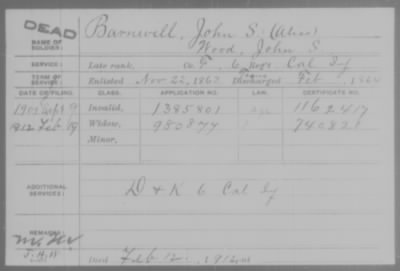 DEAD
NAME OF SOLDIER: Barnwell, John S. (Alias)
Wood, John S.
SERVICE: Late rank, Co. G, 6 Reg't Cal Inf
TERM OF SERVICE: Enlisted Nov 22, 1863 Discharged Feb , 1864
DATE OF FILING. CLASS. APPLICATION NO. LAW. CERTIFICATE NO.
1901 Sept 9 Invalid, 1385801 1162417
1912 Feb 19 Widow, 980877 740821
Minor,
ADDITIONAL SERVICES: D & K 6 Cal Inf
REMARKS:
Died Feb 12, 1912, at